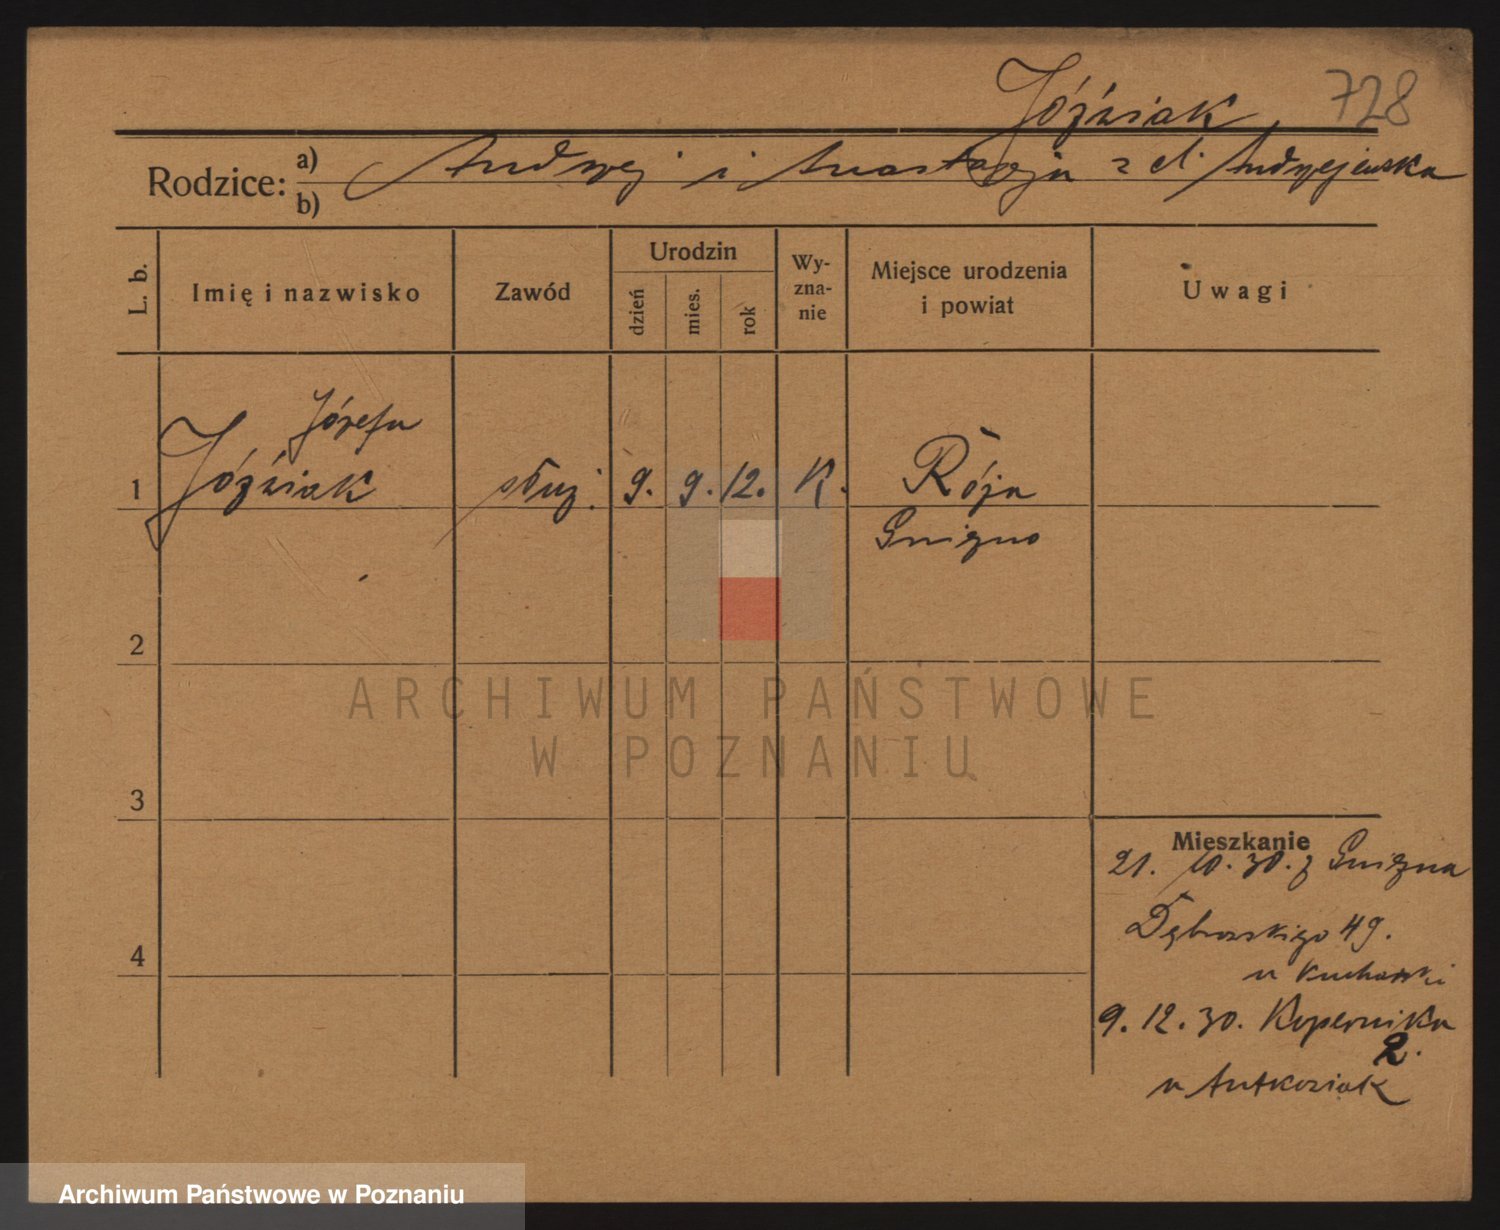 Jóźwiak 728
Rodzice: a) Andrzej i Anastazja z d. Andrzejewska
b)
L. b.
Imię i nazwisko
Zawód
Urodzin
dzień
mies.
rok
Wy-
zna-
nie
Miejsce urodzenia
i powiat
Uwagi
Józefa
1 Jóźwiak służ. 9. 9. 12. K. Róża
Gniezno
2
3
4
ARCHIWUM PAŃSTWOWE
W POZNANIU
Mieszkanie
21. 10. 30. z Gniezna
Dąbrowskiego 49.
u Kucharski
9. 12. 30. Kopernika
2.
u Antkowiak
Archiwum Państwowe w Poznaniu